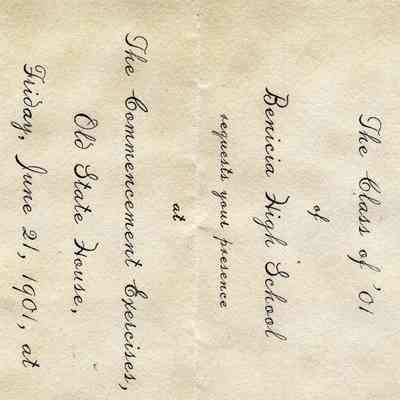 The Class of '01
of
Benicia High School
requests your presence
at
The Commencement Exercises,
Old State House,
Friday, June 21, 1901, at